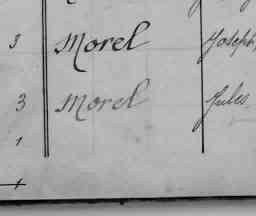 3 Morel Joseph,
3 Morel Jules
1
1